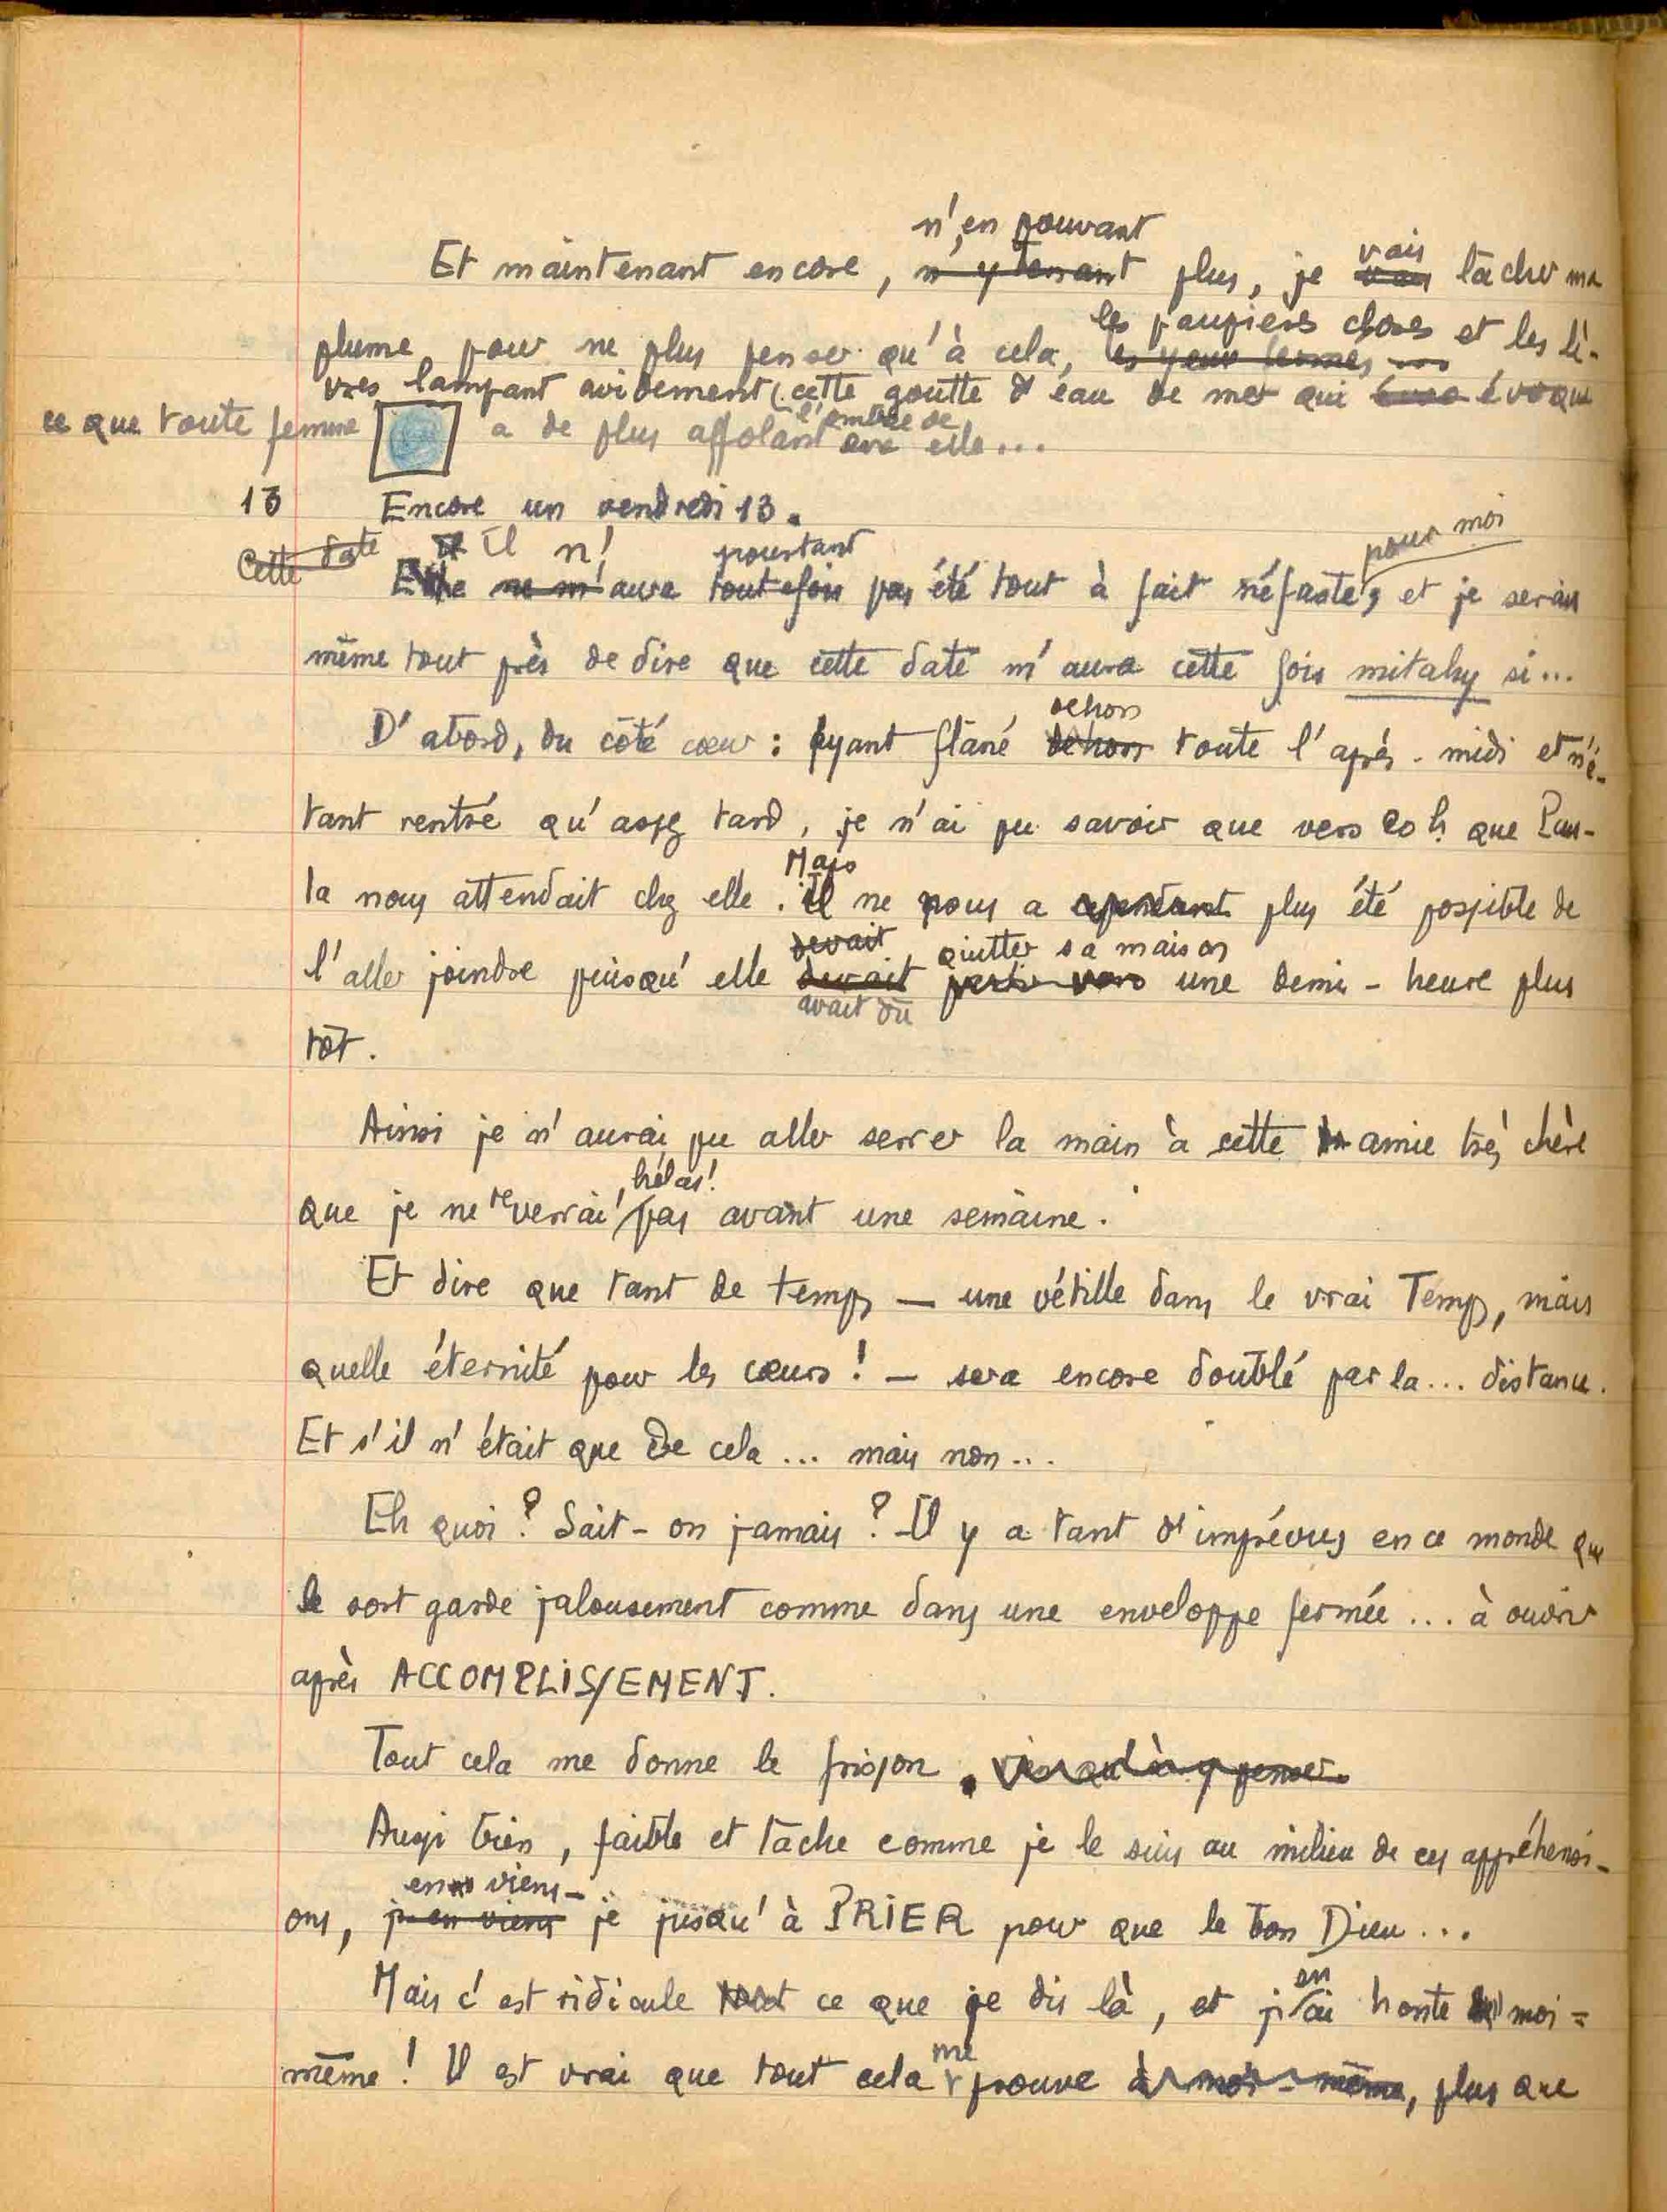 n'en pouvant
Et maintenant encore, n'y tenant plus, je vais lâcher ma
les paupières closes et les lè-
plume, pour ne plus penser qu'à cela, les yeux fermés
vres lampant avidement cette goutte d'eau de mer qui évoque
ce que toute femme a de plus affolant l'ombre de elle...
13 Encore un vendredi 13.
Cette date il n' pourtant pour moi
Elle ne m'aura toutefois pas été tout à fait néfaste, et je serais
même tout près de dire que cette date m'aura cette fois mitahy si...
dehors
D'abord, du côté cœur : ayant flâné dehors toute l'après-midi et n'é-
tant rentré qu'assez tard, je n'ai pu savoir que vers 20 h que Pau-
Mais
la nous attendait chez elle. Il ne nous a cependant plus été possible de
devait quitter sa maison
l'aller joindre puisqu'elle devait partir vers une demi-heure plus
avait dû
tôt.
Ainsi je n'aurai pu aller serrer la main à cette amie très chère
, hélas!
que je ne reverrai pas avant une semaine.
Et dire que tant de temps — une vétille dans le vrai Temps, mais
quelle éternité pour les cœurs ! — sera encore doublé par la... distance.
Et s'il n'était que de cela ... mais non...
Eh quoi ? Sait-on jamais ? Il y a tant d'imprévus en ce monde que
le sort garde jalousement comme dans une enveloppe fermée ... à ouvrir
après ACCOMPLISSEMENT.
Tout cela me donne le frisson. rien qu'à y penser.
Aussi bien, faible et lâche comme je le suis au milieu de ces appréhensi-
en viens-
ons, j'en viens je jusqu'à PRIER pour que le bon Dieu...
en
Mais c'est ridicule tout ce que je dis là, et j'ai honte de moi-
me
même ! Il est vrai que tout cela prouve à moi-même, plus que